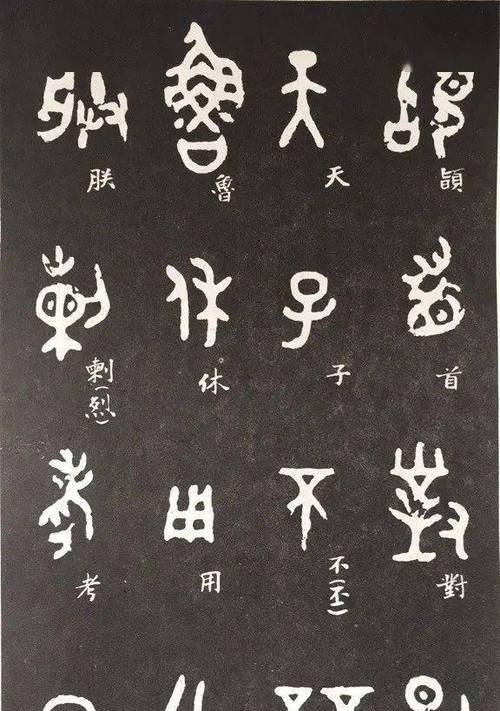 𩒨首對
天子不(丕)
魯休用
朕剌(烈)考